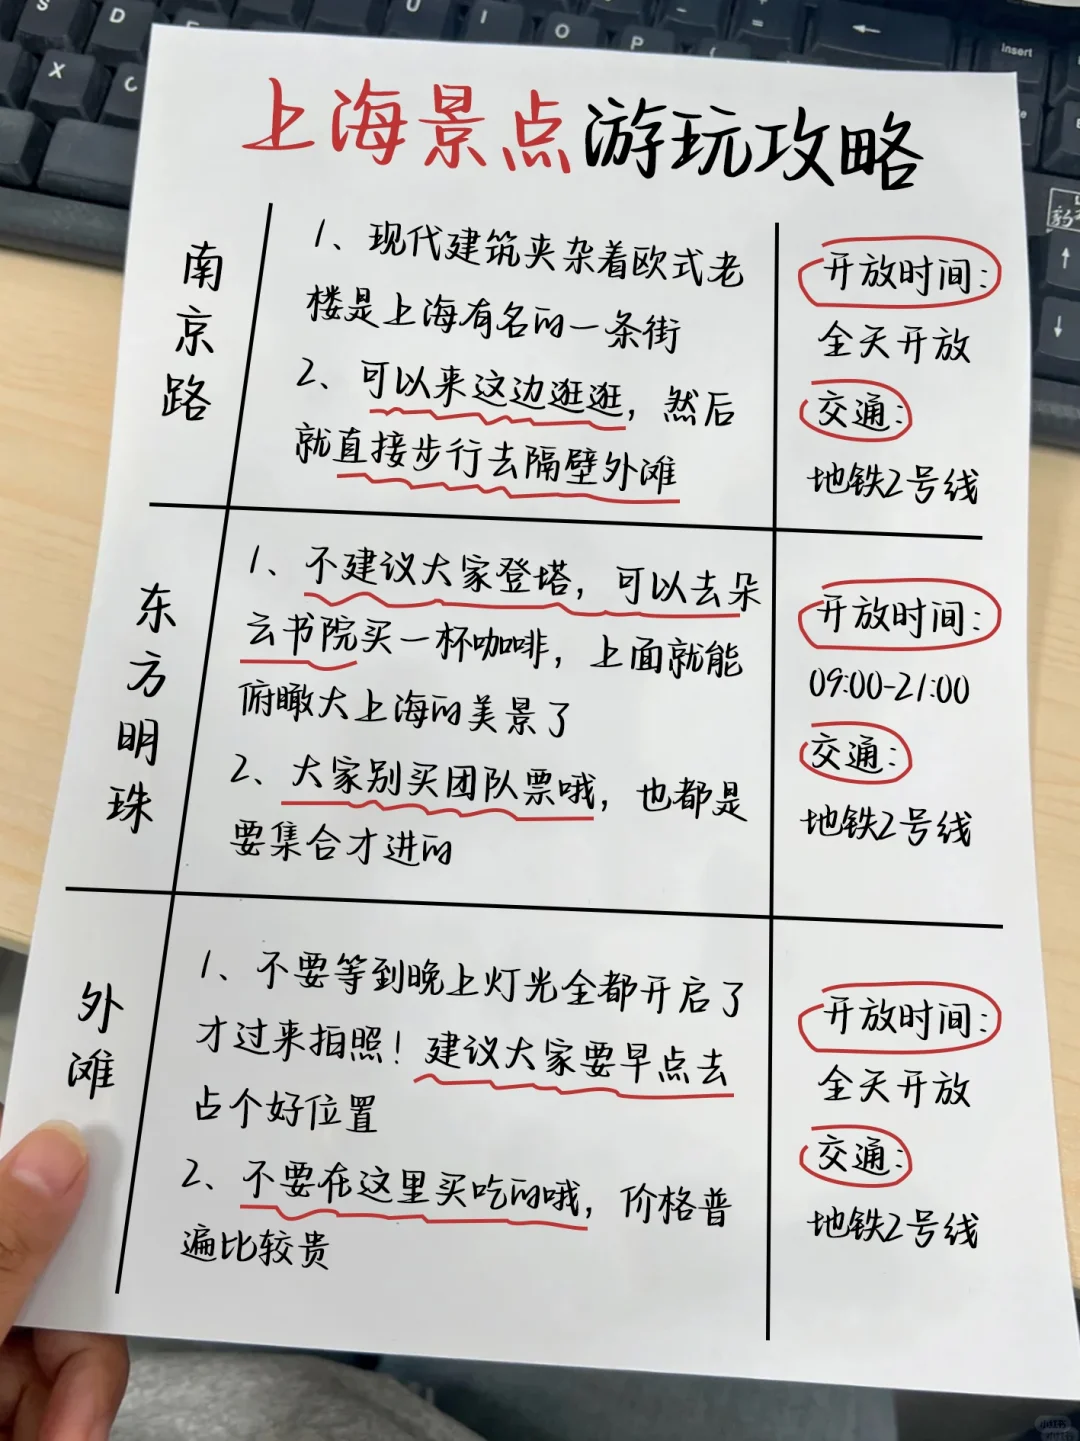 S
D
U
I
O
P
X
C
Insert
上海景点游玩攻略
南京路
1、现代建筑夹杂着欧式老
楼是上海有名的一条街
2、可以来这边逛逛,然后
就直接步行去隔壁外滩
开放时间:
全天开放
交通:
地铁2号线
东方明珠
1、不建议大家登塔,可以去朵
云书院买一杯咖啡,上面就能
俯瞰大上海的美景了
2、大家别买团队票哦,也都是
要集合才进的
开放时间:
09:00-21:00
交通:
地铁2号线
外滩
1、不要等到晚上灯光全都开启了
才过来拍照!建议大家要早点去
占个好位置
2、不要在这里买吃的哦,价格普
遍比较贵
开放时间:
全天开放
交通:
地铁2号线
小红书